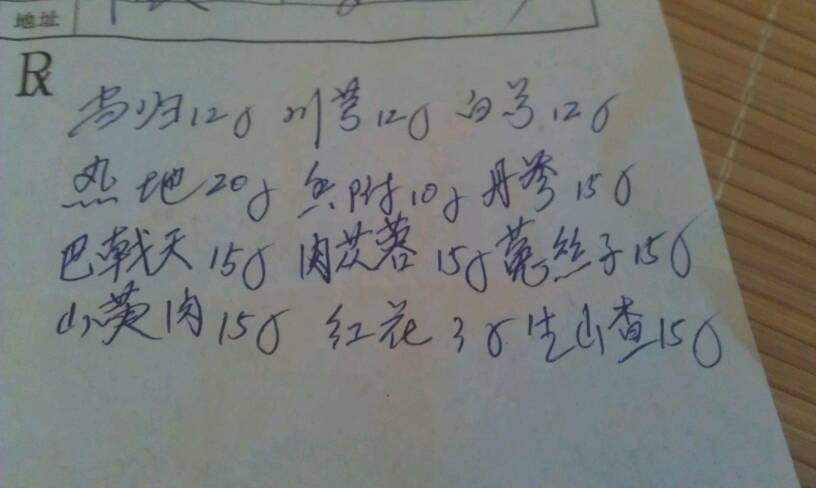 地址
Rx
当归12g 川芎12g 白芍12g
熟地20g 香附10g 丹参15g
巴戟天15g 肉苁蓉15g 菟丝子15g
山萸肉15g 红花3g 生山查15g